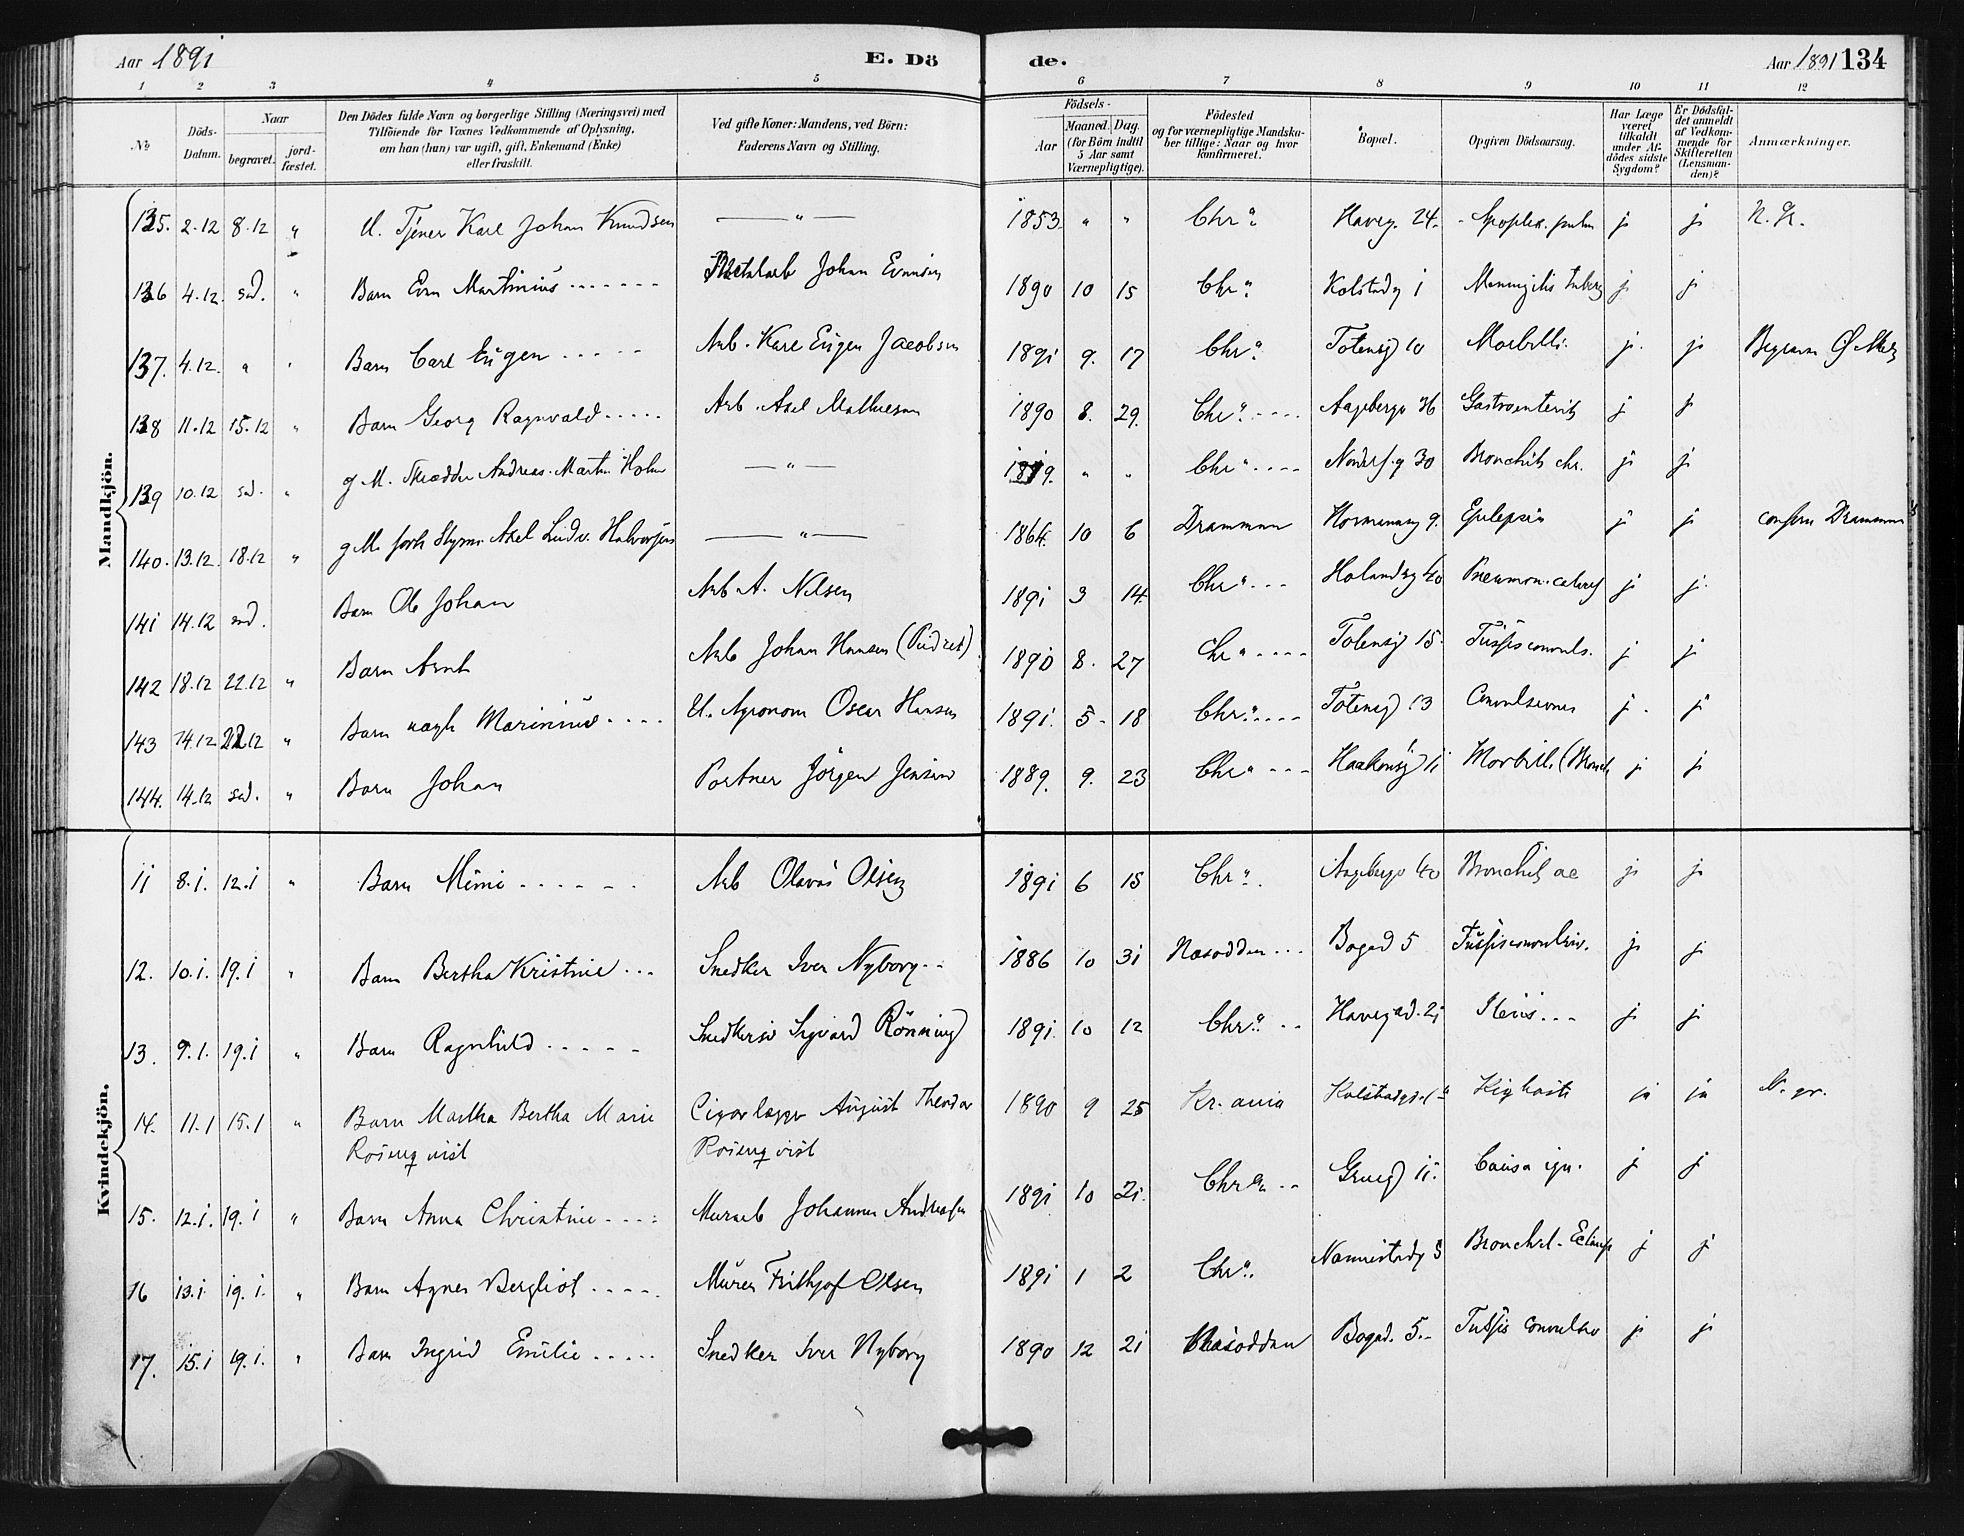 Aar 1891
E. Dö
de.
Aar 1891 134
1 2 3 4 5 6 7 8 9 10 11 12
№
Döds-
Datum.
Naar
begravet.
jord-
fæstet.
Den Dödes fulde Navn og borgerlige Stilling (Næringsvei) med
Tilföiende for Voxnes Vedkommende af Oplysning,
om han (hun) var ugift, gift, Enkemand (Enke)
eller fraskilt.
Ved gifte Koner: Mandens, ved Börn:
Faderens Navn og Stilling.
Födsels-
Aar
Maaned. Dag.
(for Börn indtil
5 Aar samt
Værnepligtige).
Födested
og for værnepligtige Mandska-
ber tillige: Naar og hvor
konfirmeret.
Bopæl.
Opgiven Dödsaarsag.
Har Læge
været
tilkaldt
under Af-
dödes sidste
Sygdom?
Er Dödsfal-
det anmeldt
af Vedkom-
mende for
Skifteretten
(Lensman-
den)?
Anmærkninger.
Mandkjön.
135. 2.12 8.12 " U. Tjener Karl Johan Knudsen — " — 1853 " " Chra. Haveg. 24. Apoplex. pulm j j N. Gr.
136 4.12 sd. " Barn Martinius Johan 1890 10 15 Chra. Kolstadg 1 Meningitis tuberc j j
137. 4.12. " " Barn Carl Eugen Arb. Karl Eugen Jacobsen 1891 9. 17 Chra. Totensg 10 Morbilli. j. j
138 11.12 15.12 " Barn Georg Ragnvald Arb. Axel Mathiesen 1890 8. 29. Chra. Aagebergv 36 Gastroenterit j j
139 10.12 sd. " g M. Skrædder Andreas Martin Holm — " — " " Chra. 30 Bronchit chr. j j
140. 13.12. 18.12 " g M. Axel Ludv. Halvorsen — " — 1864. 10 6 Drammen 9. Epilepsia j j Drammen
141 14.12 sd. Barn Ole Johan Arb A. Nilsen 1891 3 14. Chra 40 j j.
142 18.12 22.12 " Barn Arnt Arb Johan Hansen 1890 8. 27 Chra Totensg 15. Tussis convuls. j j
143 14.12 22.12 " Barn uægte Marinius U. Agronom Oscar Hansen 1891. 5 18 Chra. Totensg 13 Convulsiones j. j
144. 14.12 sd. " Barn Johan Portner Jörgen Jensen 1889. 9. 23 Chra Haakonsg 11 Morbilli (Bronch j j
Kvindekjön.
11 8.1. 12.1 " Barn Mimi Arb Olavus Olsen 1891 6 15 Chra. Aagebergv 40 Bronchit ac j j
12. 10.1. 19.1 " Barn Bertha Kristine Snedker Iver Nyborg 1886 10 31 Næsodden Bogad 5 Tussis convulsiv. j j
13. 9.1. 19.1 " Barn Ragnhild Snedkersv Sigvard Rönning 1891. 10 12 Chra. Havegad. 21 j j
14. 11.1 15.1 " Barn Martha Bertha Marie Cigarlægger August Theodor 1890 9 25 Kr.ania Kighoste ja ja N. gr.
Rosenqvist Rosenqvist
15. 12.1. 19.1 " Barn Anna Christine Murarb Johannes Andreasen 1891 10 21. Chra Grueg 11. Causa ign. j j
16 13.1 19.1. " Barn Agnes Bergliot Murer Frithjof Olsen 1891 1 2 Chra. Nannestadg 5 Bronchit. Eclamp j j
17. 15.1 19.1. " Barn Ingrid Emilie Snedker Iver Nyborg 1890 12 21 Næsodden Bogad. 5. Tussis convulsiv j j